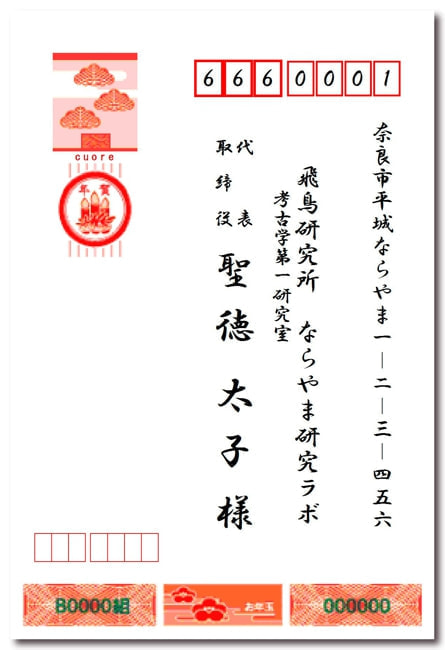 6660001
奈良市平城ならやま一―二―三―四五六
飛鳥研究所 ならやま研究ラボ
考古学第一研究室
代表
取締役
聖徳太子様
cuore
年賀
B0000組
お年玉
000000